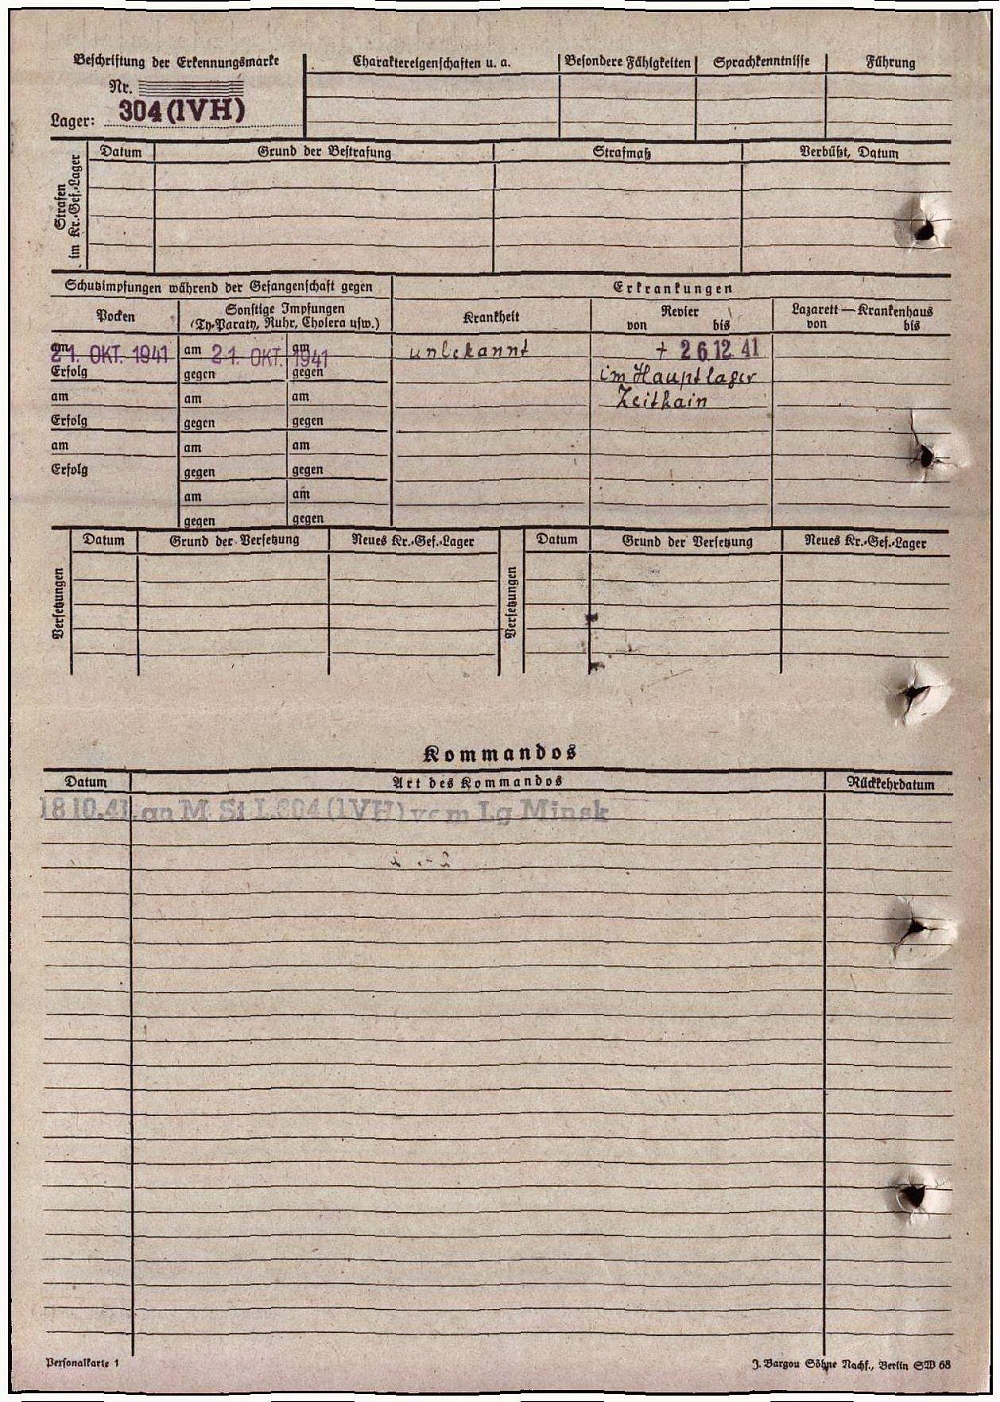 Beschriftung der Erkennungsmarke
Nr.
Lager: 304 (IVH)
Charaktereigenschaften u. a.
Besondere Fähigkeiten
Sprachkenntnisse
Führung
Strafen im Kr.-Gef.-Lager
Datum
Grund der Bestrafung
Strafmaß
Verbüßt, Datum
Schutzimpfungen während der Gefangenschaft gegen
Erkrankungen
Pocken
Sonstige Impfungen
(Ty-Paraty, Ruhr, Cholera usw.)
Krankheit
Revier
von bis
Lazarett — Krankenhaus
von bis
am 21. OKT. 1941 am 21. OKT. 1941 am unbekannt + 26 12 41
Erfolg gegen gegen im Hauptlager
am am am Zeithain
Erfolg gegen gegen
am am am
Erfolg gegen gegen
am am
gegen gegen
Versetzungen
Datum Grund der Versetzung Neues Kr.-Gef.-Lager
Versetzungen
Datum Grund der Versetzung Neues Kr.-Gef.-Lager
Kommandos
Datum Art des Kommandos Rückkehrdatum
18.10.41. an M. St L.304 (IVH) vom Lg Minsk
Personalkarte 1
J. Bargou Söhne Nachf., Berlin SW 68